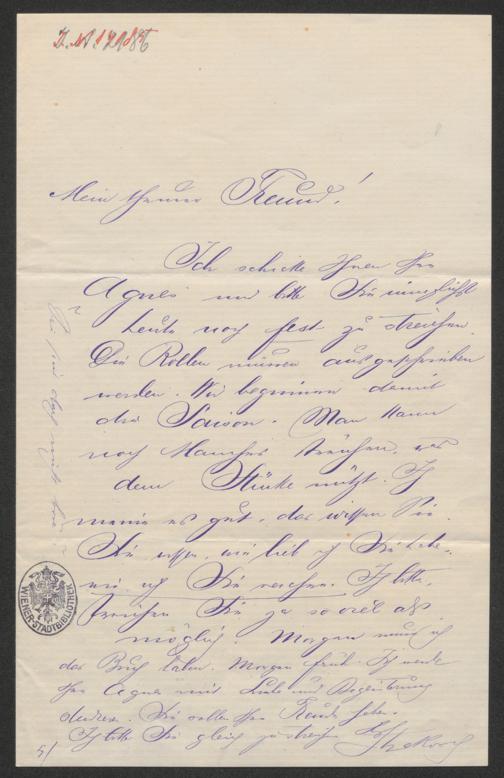 Mein theurer Freund!
Ich schicke Ihnen Ihre
Agnes und bitte Sie inniglichst
heute noch fest zu streichen.
Die Rollen müssen ausgeschrieben
werden. Wir beginnen damit
die Saison. Man kann
noch Manches streichen, was
dem Stücke nützt. Ich
meine es gut, das wissen Sie.
Sie wissen, wie lieb ich Sie habe,
wie ich Sie verehre. Ich bitte,
streichen Sie ja so viel als
möglich! Morgen muss ich
das Buch haben. Morgen früh. Ich werde
Ihre Agnes mit Liebe und Begeisterung
Sie sollen Ihre Freude haben.
Ich bitte Sie gleich zu streichen
Sie sind doch nicht böse
WIENER-STADTBIBLIOTHEK